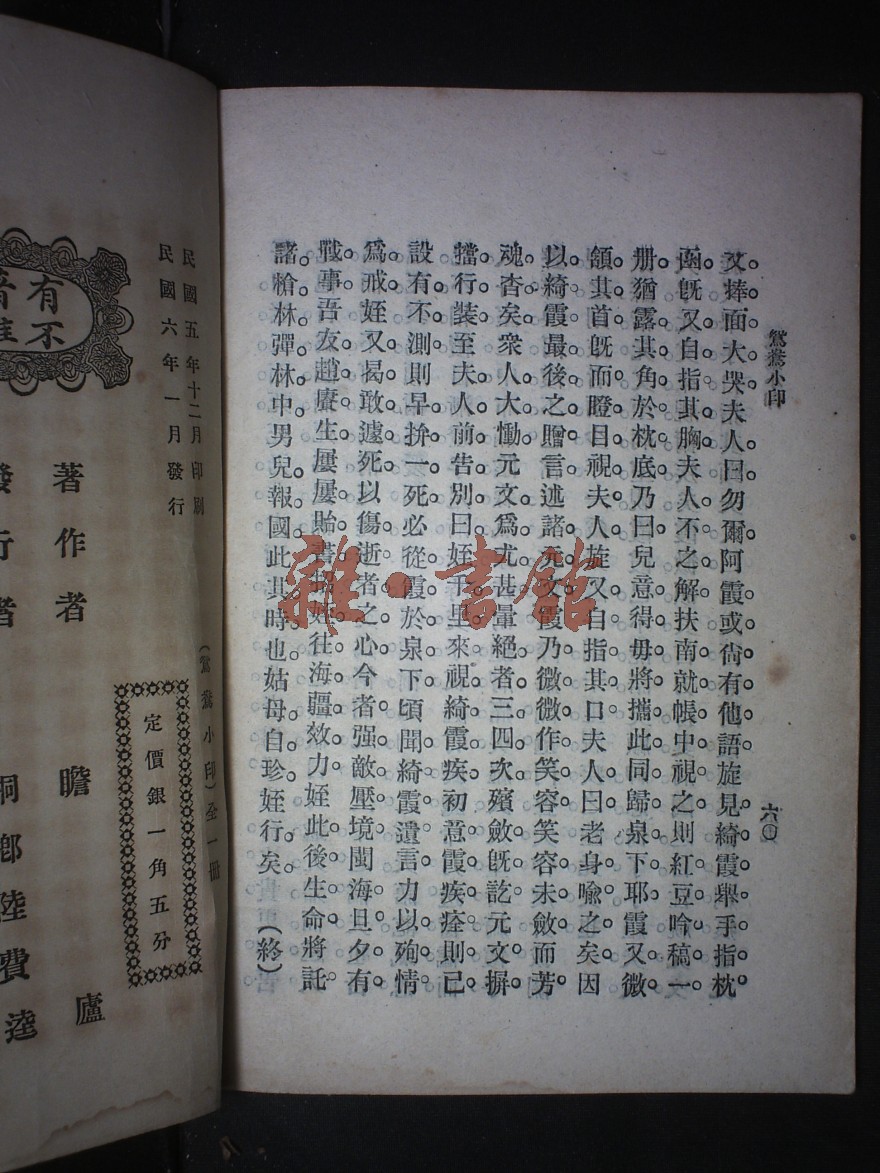 鴛鴦小印
六〇
文捧面大哭。夫人曰。勿爾。阿霞或尙有他語。旋見綺霞舉手指枕
函。旣又自指其胸。夫人不之解。扶南就帳中視之。則紅豆吟稿一
册。猶露其角於枕底。乃曰。兒意得毋將攜此同歸泉下耶。霞又微
頷其首。旣而瞪目視夫人。旋又自指其口。夫人曰。老身喩之矣。因
以綺霞最後之贈言。述諸元文。霞乃微微作笑容。笑容未斂。而芳
魂杳矣。衆人大慟。元文爲尤甚。暈絕者三四次。殯斂旣訖。元文摒
擋行裝。至夫人前告別曰。姪千里來視綺霞疾。初意霞疾痊則已。
設有不測。則早拚一死。必從霞於泉下。頃聞綺霞遺言。力以殉情
爲戒。姪又曷敢遽死。以傷逝者之心。今者强敵壓境。閩海旦夕有
戰事。吾友趙賡生。屢屢貽書招姪。往海疆效力。姪此後生命。將託
諸槍林彈林中。男兒報國。此其時也。姑母自珍。姪行矣。（終）
民國五年十二月印刷
民國六年一月發行
（鴛鴦小印）全一冊
定價銀一角五分
著作者 瞻廬
發行者 桐鄉陸費逵
有不
著
雜·書館